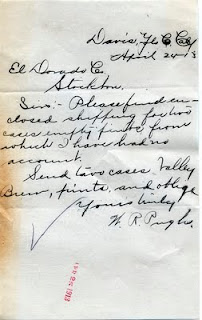 Davis, Yolo Co Cal
April 24-13
El Dorado Co.
Stockton,
Sirs:- Please find en-
closed shipping for two
cases empty pints from
which I have had no
account.
Send two cases Valley
Brew, pints, and oblige
Yours truly
W. R. Pugh.
APR 25 1913